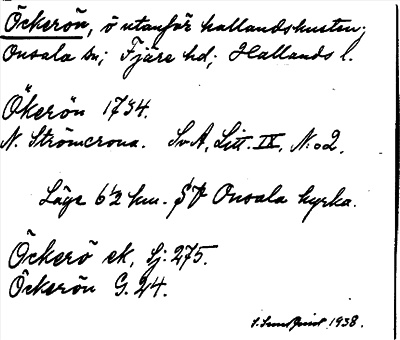 Öckerön, ö utanför hallandskusten;
Onsala sn; Fjäre hd; Hallands l.
Ökerön 1734.
N. Strömcrona. SvA, Litt. IX, N:o 2.
Läge 6½ km. S Onsala kyrka.
Öckerö ek, Sj. 275.
Öckerön G. 24.
1938.